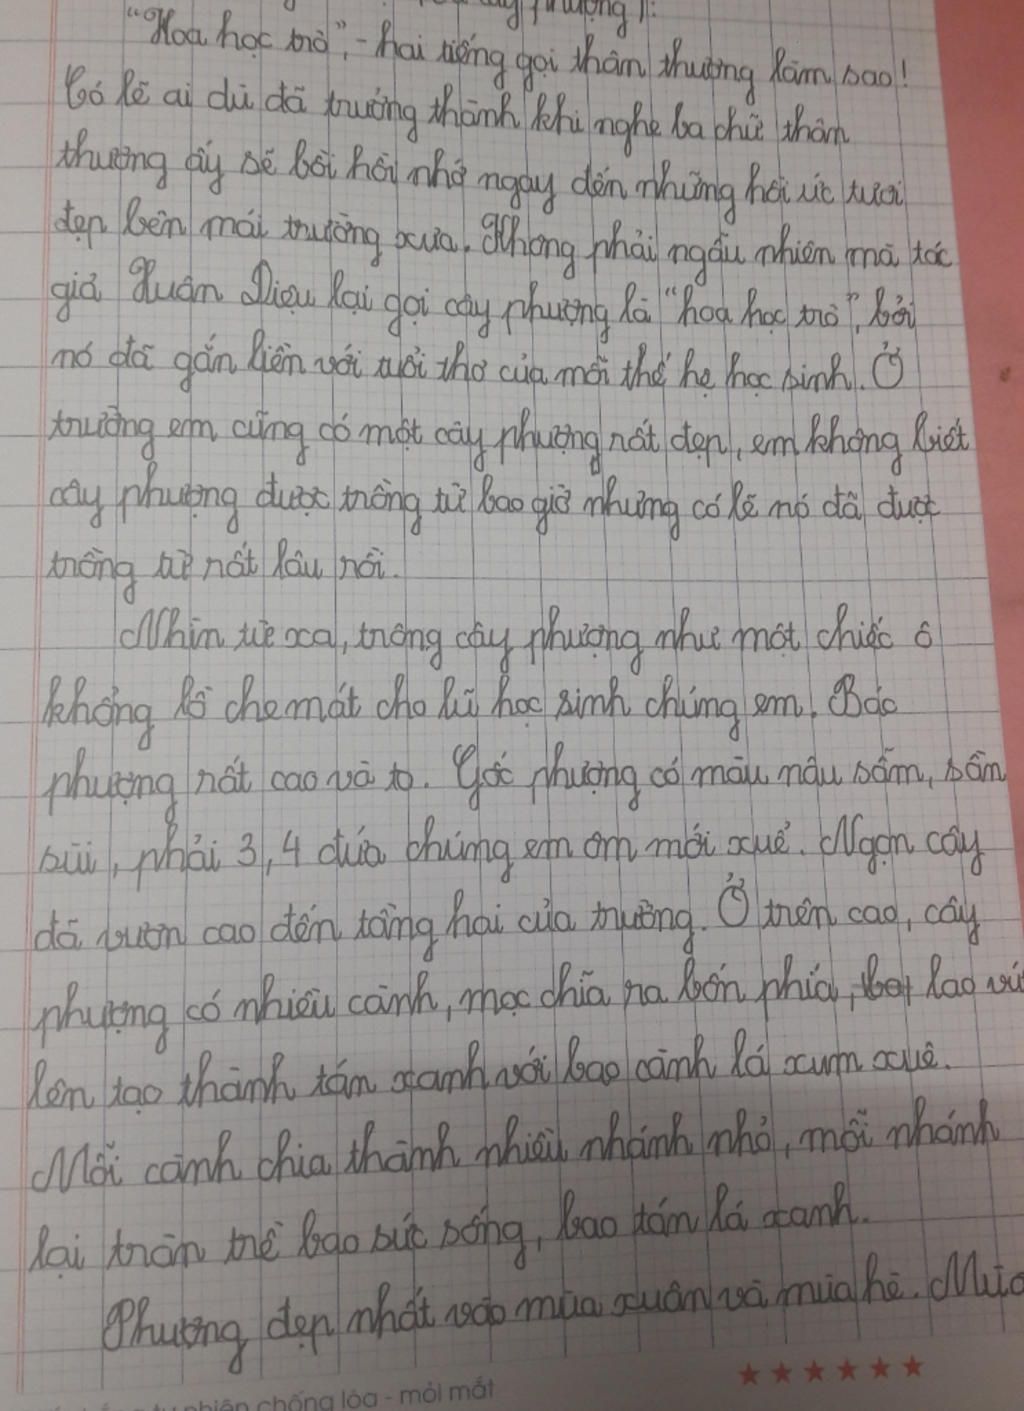 phượng).
"Hoa học trò",- hai tiếng gọi thân thương làm sao!
Có lẽ ai dù đã trưởng thành khi nghe ba chữ thân
thương ấy sẽ bồi hồi nhớ ngay đến những hồi ức tươi
đẹp bên mái trường xưa. Không phải ngẫu nhiên mà tác
giả Xuân Diệu lại gọi cây phượng là "hoa học trò", bởi
nó đã gắn liền với tuổi thơ của mỗi thế hệ học sinh. Ở
trường em cũng có một cây phượng rất đẹp, em không biết
cây phượng được trồng từ bao giờ nhưng có lẽ nó đã được
trồng từ rất lâu rồi.
Nhìn từ xa, trông cây phượng như một chiếc ô
khổng lồ che mát cho lũ học sinh chúng em. Bác
phượng rất cao và to. Gốc phượng có màu nâu sẫm, sần
sùi, phải 3, 4 đứa chúng em ôm mới xuể. Ngọn cây
đã vươn cao đến tầng hai của trường. Ở trên cao, cây
phượng có nhiều cành, mọc chĩa ra bốn phía, lao vút
lên tạo thành tán xanh với bao cành lá xum xuê.
Mỗi cành chia thành nhiều nhánh nhỏ, mỗi nhánh
lại tràn trề bao sức sống, bao tán lá xanh.
Phượng đẹp nhất vào mùa xuân và mùa hè. Mùa
nhiên chống lóa - mỏi mắt